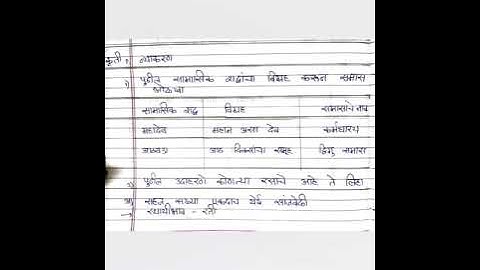 कृती. व्याकरण
१) पुढील सामासिक शब्दांचा विग्रह करून समास
ओळखा
सामासिक शब्द विग्रह समासाचे नाव
महादेव महान असा देव कर्मधारय
आठवडा आठ दिवसांचा समूह द्विगु समास
२) पुढील उदाहरणे कोणत्या रसाचे आहे ते लिहा
सख्या एकदाच येई सांजवेळी
→ स्थायीभाव - रती